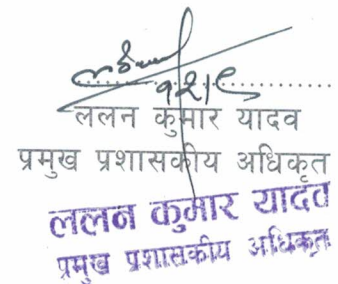 १२।९
ललन कुमार यादव
प्रमुख प्रशासकीय अधिकृत
ललन कुमार यादव
प्रमुख प्रशासकीय अधिकृत